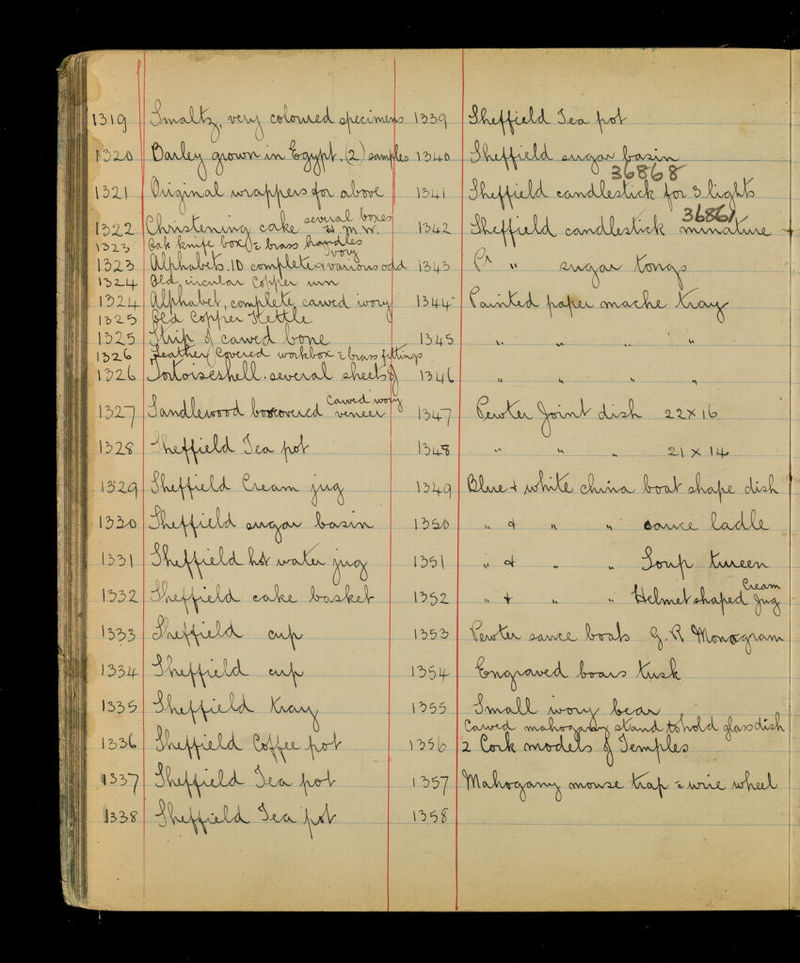 1319 Smalts, very coloured specimens
1320 Barley grown in Egypt. (2) samples
1321 Original wrappers for above
several boxes
1322 Christening cake
1323 Oak knife box & brass handles
Ivory
1323 Alphabets. 10 complete & various odd
1324 Old circular Copper urn
1324 Alphabet, complete, carved ivory
1325 Old Copper Kettle
1325 Strip of carved bone
1326 Leather Covered workbox & brass fittings
1326 Tortoiseshell. several sheets of
Carved ivory
1327 Sandlewood box covered veneer
1328 Sheffield Tea pot
1329 Sheffield Cream jug
1330 Sheffield sugar basin
1331 Sheffield hot water jug
1332 Sheffield cake basket
1333 Sheffield cup
1334 Sheffield cup
1335 Sheffield Tray
1336 Sheffield Coffee pot
1337 Sheffield Tea pot
1338 Sheffield Tea pot
1339 Sheffield Tea pot
1340 Sheffield sugar basin
36868
1341 Sheffield candlestick for 3 lights
36861
1342 Sheffield candlestick miniature
1343 Pr " sugar tongs
1344 Painted paper mache tray
1345 " " " "
1346 " " "
1347 Pewter Joint dish 22 x 16
1348 " " " 21 x 14
1349 Blue & white china boat shape dish
1350 " & " " sauce ladle
1351 " & " " Soup tureen
Cream
1352 " & " " Helmet shaped Jug
1353 Pewter sauce boats G.R Monogram
1354 Engraved boars tusk
1355 Small ivory bear
Carved mahogany stand to hold glass dish
1356 2 Cork models of Temples
1357 Mahogany mouse trap & wire wheel
1358